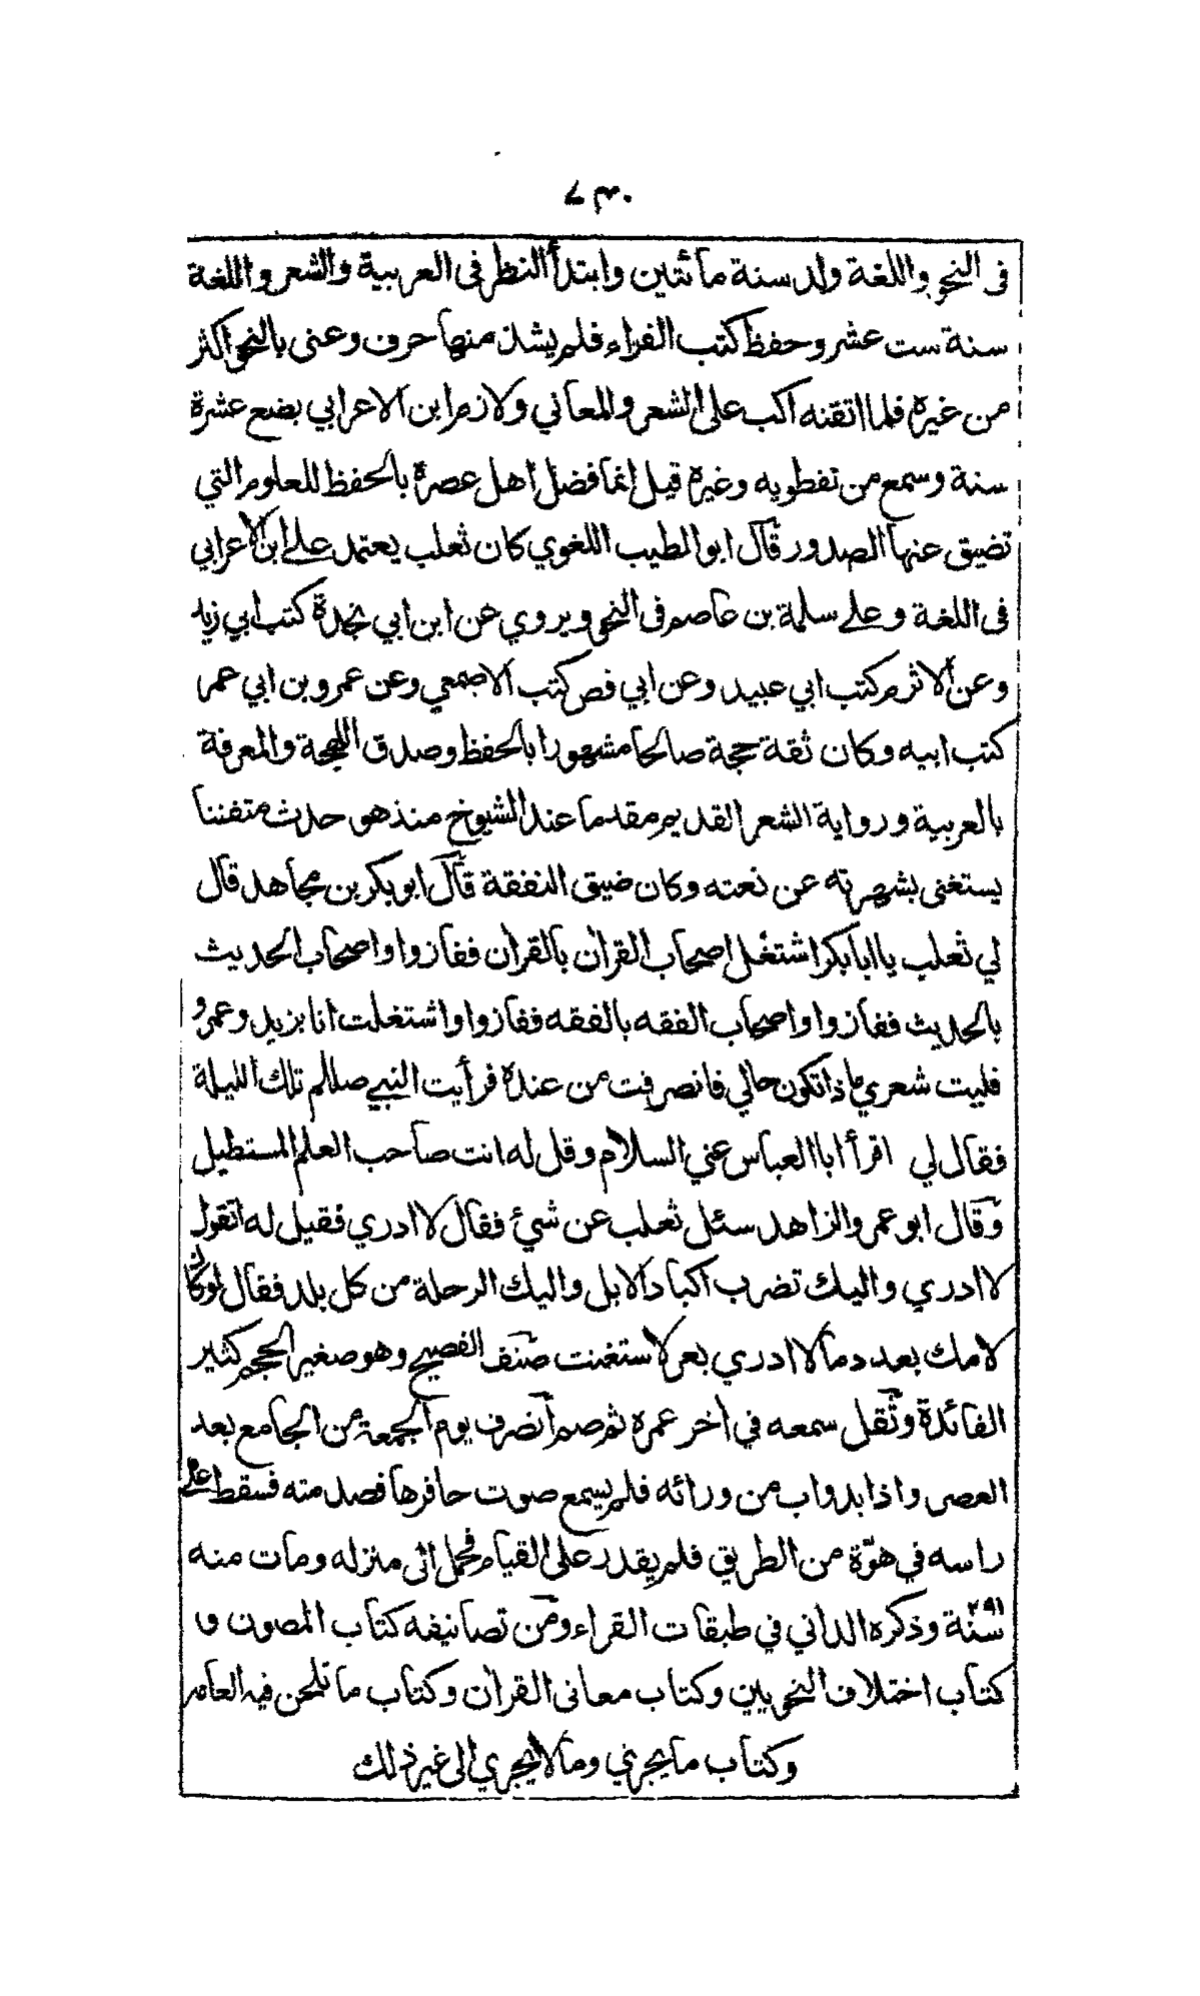 ٧٣٠
في النحو واللغة ولد سنة مائتين وابتدأ النظر في العربية والشعر واللغة
سنة ست عشر وحفظ كتب الفراء فلم يشذ منها حرف وعنى بالنحو اكثر
من غيره فلما اتقنه اكب على الشعر والمعاني ولازم ابن الاعرابي بضع عشرة
سنة وسمع من نفطويه وغيره قيل انما فضل اهل عصرة بالحفظ للعلوم التي
تضيق عنها الصدور قال ابو الطيب اللغوي كان ثعلب يعتمد على ابن الاعرابي
في اللغة وعلى سلمة بن عاصم في النحو ويروي عن ابن ابي نجدة كتب ابي زيد
وعن الاثرم كتب ابي عبيد وعن ابي نصر كتب الاصمعي وعن عمرو بن ابي عمر
كتب ابيه وكان ثقة حجة صالحا مشهورا بالحفظ وصدق اللهجة والمعرفة
بالعربية ورواية الشعر القديم مقدما عند الشيوخ منذ هو حدث متفننا
يستغنى بشهرته عن نعته وكان ضيق النفقة قال ابو بكر بن مجاهد قال
لي ثعلب يا ابا بكر اشتغل اصحاب القرأن بالقرأن ففازوا واصحاب الحديث
بالحديث ففازوا واصحاب الفقه بالفقه ففازوا واشتغلت انا بزيد وعمرو
فليت شعري ما ذا تكون حالي فانصرفت من عندة فرأيت النبي صللم تلك الليلة
فقال لي اقرأ ابا العباس عني السلام وقل له انت صاحب العلم المستطيل
وقال ابو عمر والزاهد سئل ثعلب عن شيء فقال لا ادري فقيل له اتقول
لا ادري واليك تضرب اكباد الابل واليك الرحلة من كل بلد فقال لو كان
لامك بعدد ما لا ادري بعر لاستغنت صنف الفصيح وهو صغير الحجم كثير
الفائدة وثقل سمعه في أخر عمره ثم صم انصرف يوم الجمعة من الجامع بعد
العصر واذا بدواب من ورائه فلم يسمع صوت حافرها فصدمته فسقط على
راسه في هوّة من الطريق فلم يقدر على القيام فحمل الى منزله ومات منه
سنة ٢٩١ وذكره الداني في طبقات القراء ومن تصانيفه كتاب المصون و
كتاب اختلاف النحويين وكتاب معانى القرأن وكتاب ما تلحن فيه العامه
وكتاب ما يجري وما لا يجري الى غير ذلك